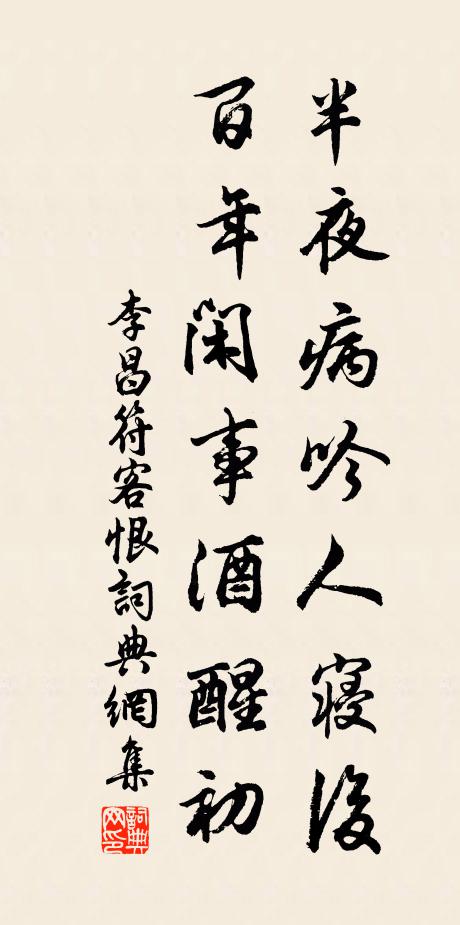 半夜病吟人寢後
百年閑事酒醒初
李昌符客恨詞典網集
詞典网印